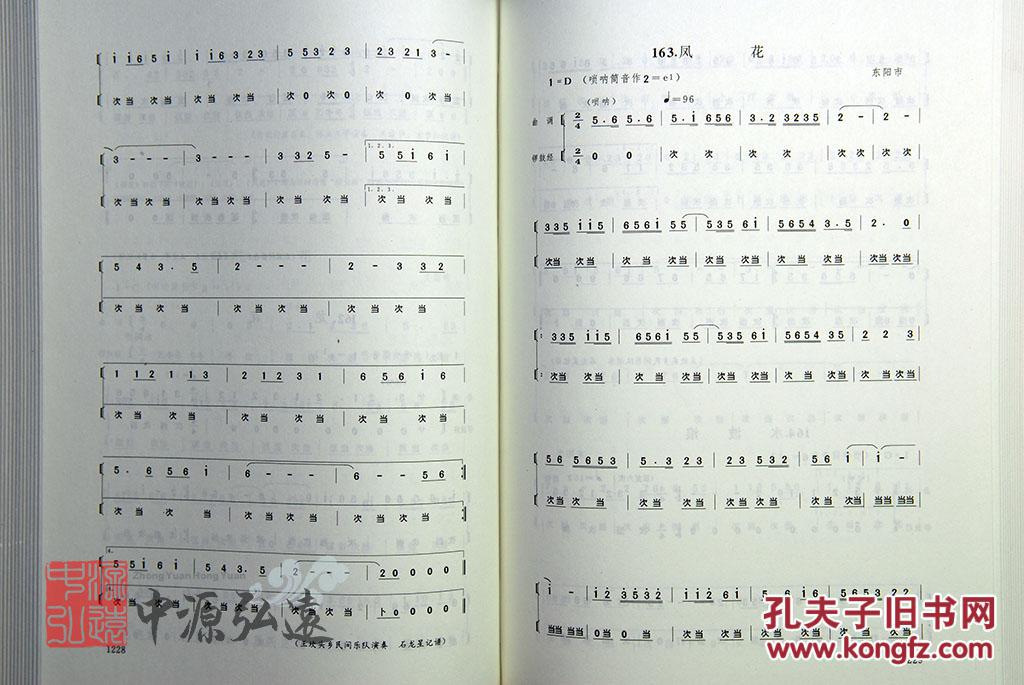 i i 6 5 i | i i 6 3 2 3 | 5 5 3 2 3 | 2 3 2 1 3 -
次当 次当 | 次当 次当 | 次 0 次 0 | 次 0 次当
3 - - - | 3 - - - | 3 3 2 5 - | 5 5 i 6 i
1. 2. 3.
次当 次当 | 次当次当 | 次当 次当 | 次当 次当
1. 2. 3.
5 4 3. 5 | 2 - - - | 2 - 3 3 2
次当次当 | 次当次当 | 次当次当
1 1 2 1 1 3 | 2 1 2 3 1 | 6 5 6 i 6
次当 次当 | 次当 次当 | 次当 次当
5. 6 5 6 i | 6 - - - | 6 - - 5 6
次当 次 当 | 次当次当 | 次当次当
4.
5 5 i 6 i | 5 4 3. 5 | 2 - - - | 2 0 0 0 0
次当 次当 | 次当次当 | 次当次当 | 卜 0 0 0 0
石龙星记谱)
1228
163.凤 花
东阳市
1=D (唢呐筒音作2=e1)
(唢呐) ♩=96
曲 调 2/4 5. 6 5. 6 | 5. i 6 5 6 | 3. 2 3 2 3 5 | 2 - | 2 -
锣鼓经 2/4 0 0 | 次 次 | 次 次 | 次 次 | 次 次
3 3 5 i i 5 | 6 5 6 i 5 5 | 5 3 5 6 i | 5 6 5 4 3. 5 | 2. 0
次当 次当 | 次当 次当 | 次当 次当 | 次当 次当 | 次当次当
3 3 5 i i 5 | 6 5 6 i 5 5 | 5 3 5 6 i | 5 6 5 4 3 5 | 2 2 3
次当 次当 | 次当 次当 | 次当 次当 | 次当 次当 | 次当 次当
5 6 5 6 5 3 | 5. 3 2 3 | 2 3 5 3 2 | 5 6 i | i -
次当 次当 | 次当 次当 | 次当 次当 | 次当 次当 | 当当 当当
i - | i 2 3 5 3 2 | i i 2 6 i
孔夫子旧书网
www.kongfz.com
中源弘遠
Zhong Yuan Hong Yuan